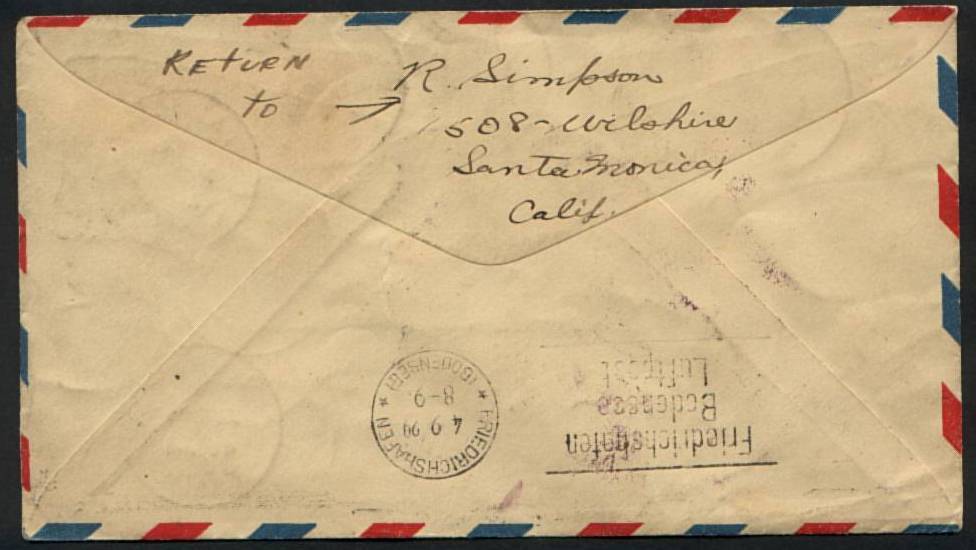 RETURN
to →
R. Simpson
508-Wilshire
Santa Monica,
Calif.
FRIEDRICHSHAFEN
* (BODENSEE) *
4 9 29
8-9
Friedrichshafen
Bodensee
Luftpost